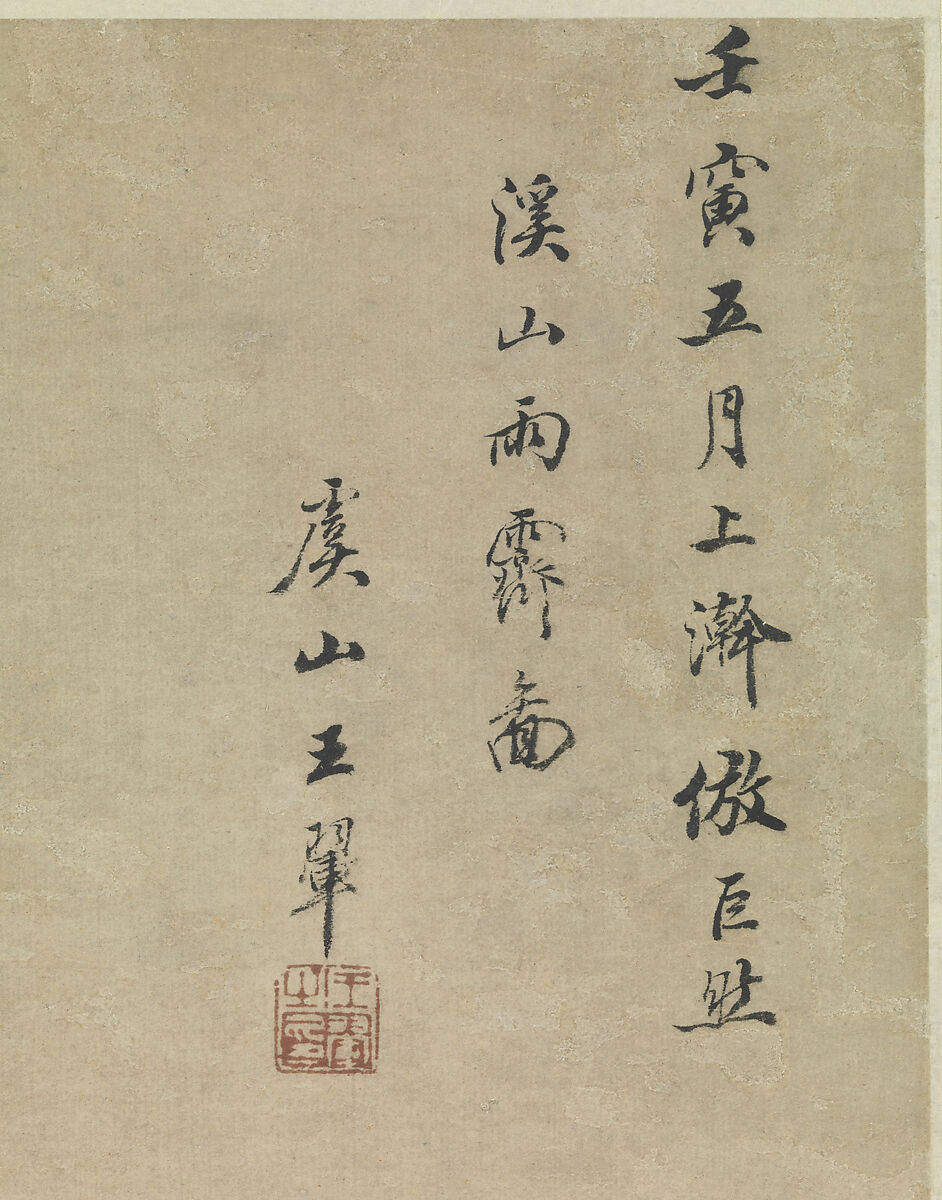 壬寅五月上澣倣巨然
溪山雨霽圖
虞山王翬
王翬之印